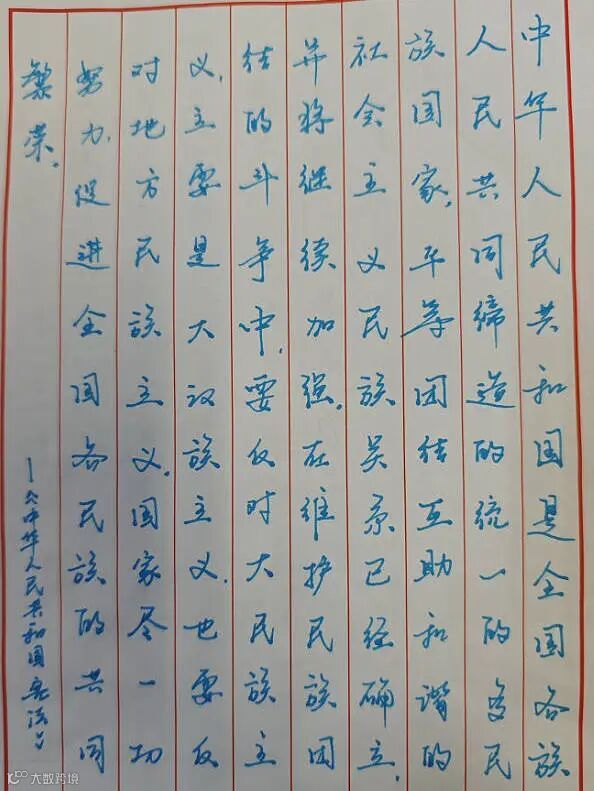 中华人民共和国是全国各族
人民共同缔造的统一的多民
族国家。平等团结互助和谐的
社会主义民族关系已经确立，
并将继续加强。在维护民族团
结的斗争中，要反对大民族主
义，主要是大汉族主义，也要反
对地方民族主义。国家尽一切
努力，促进全国各民族的共同
繁荣。
—《中华人民共和国宪法》
大数跨境